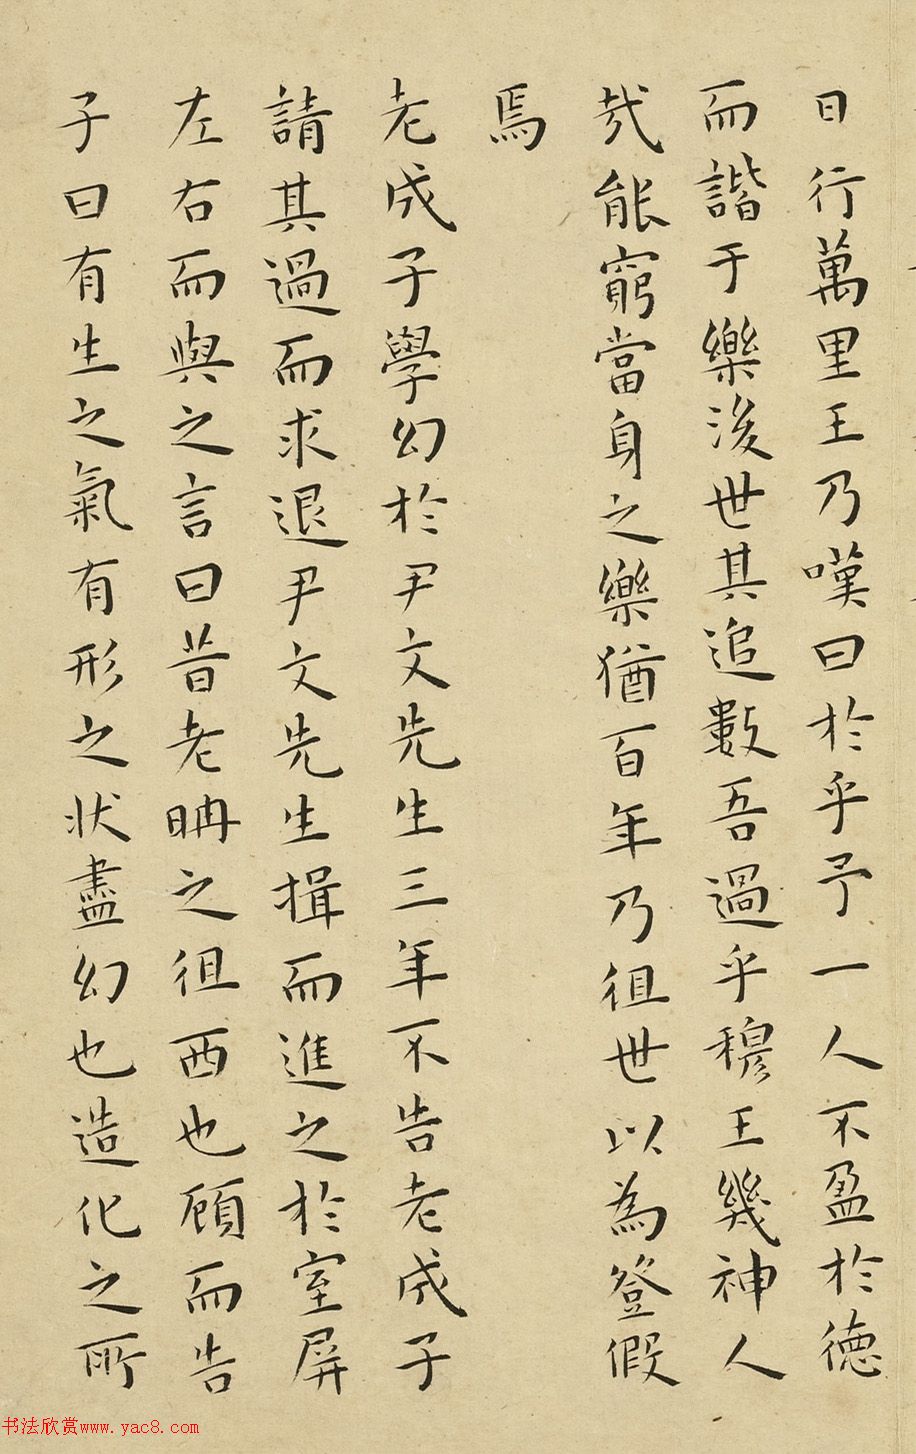 日行萬里王乃嘆曰於乎予一人不盈於德
而諧于樂後世其追數吾過乎穆王幾神人
哉能窮當身之樂猶百年乃徂世以為登假
焉
老成子學幻於尹文先生三年不告老成子
請其過而求退尹文先生揖而進之於室屏
左右而與之言曰昔老聃之徂西也顧而告
子曰有生之氣有形之状盡幻也造化之所
书法欣赏www.yac8.com